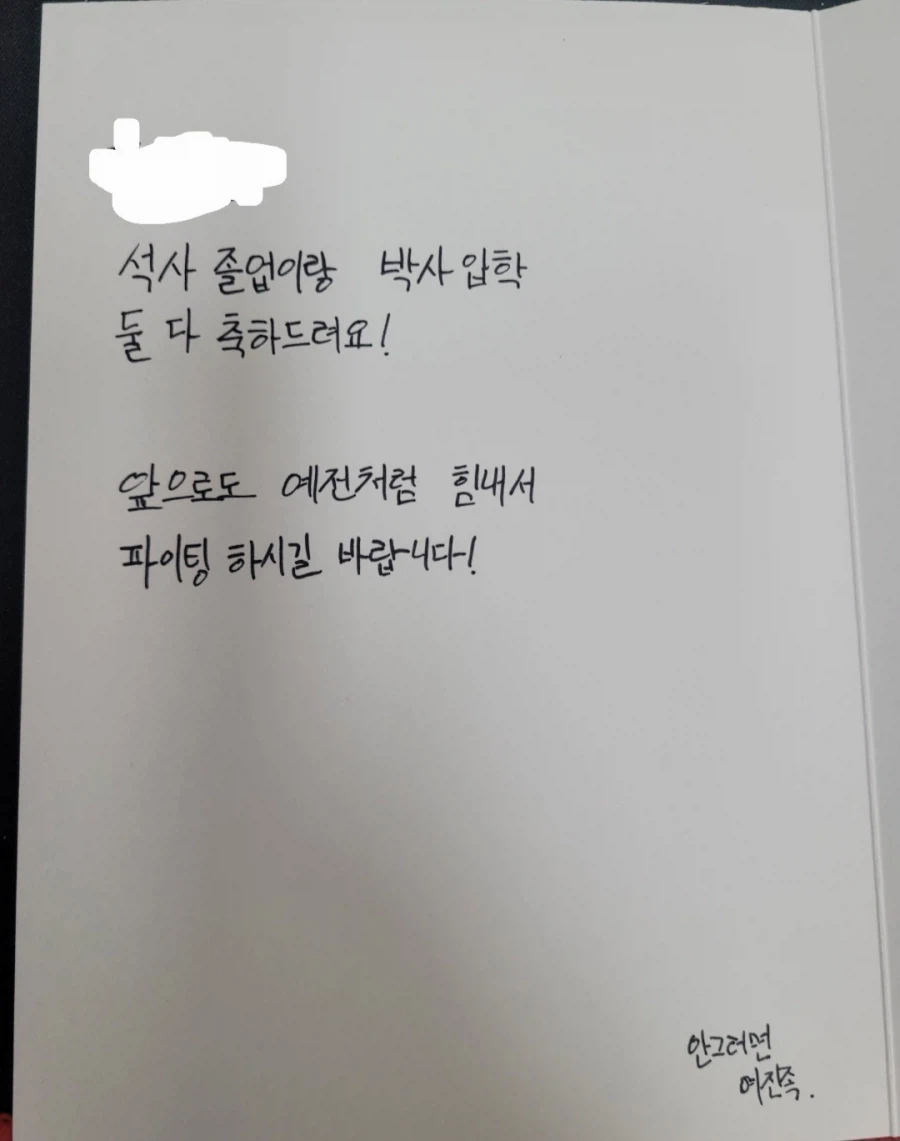 석사 졸업이랑 박사 입학
둘 다 축하드려요!
앞으로도 예전처럼 힘내서
파이팅 하시길 바랍니다!
안그러면
여잔족.